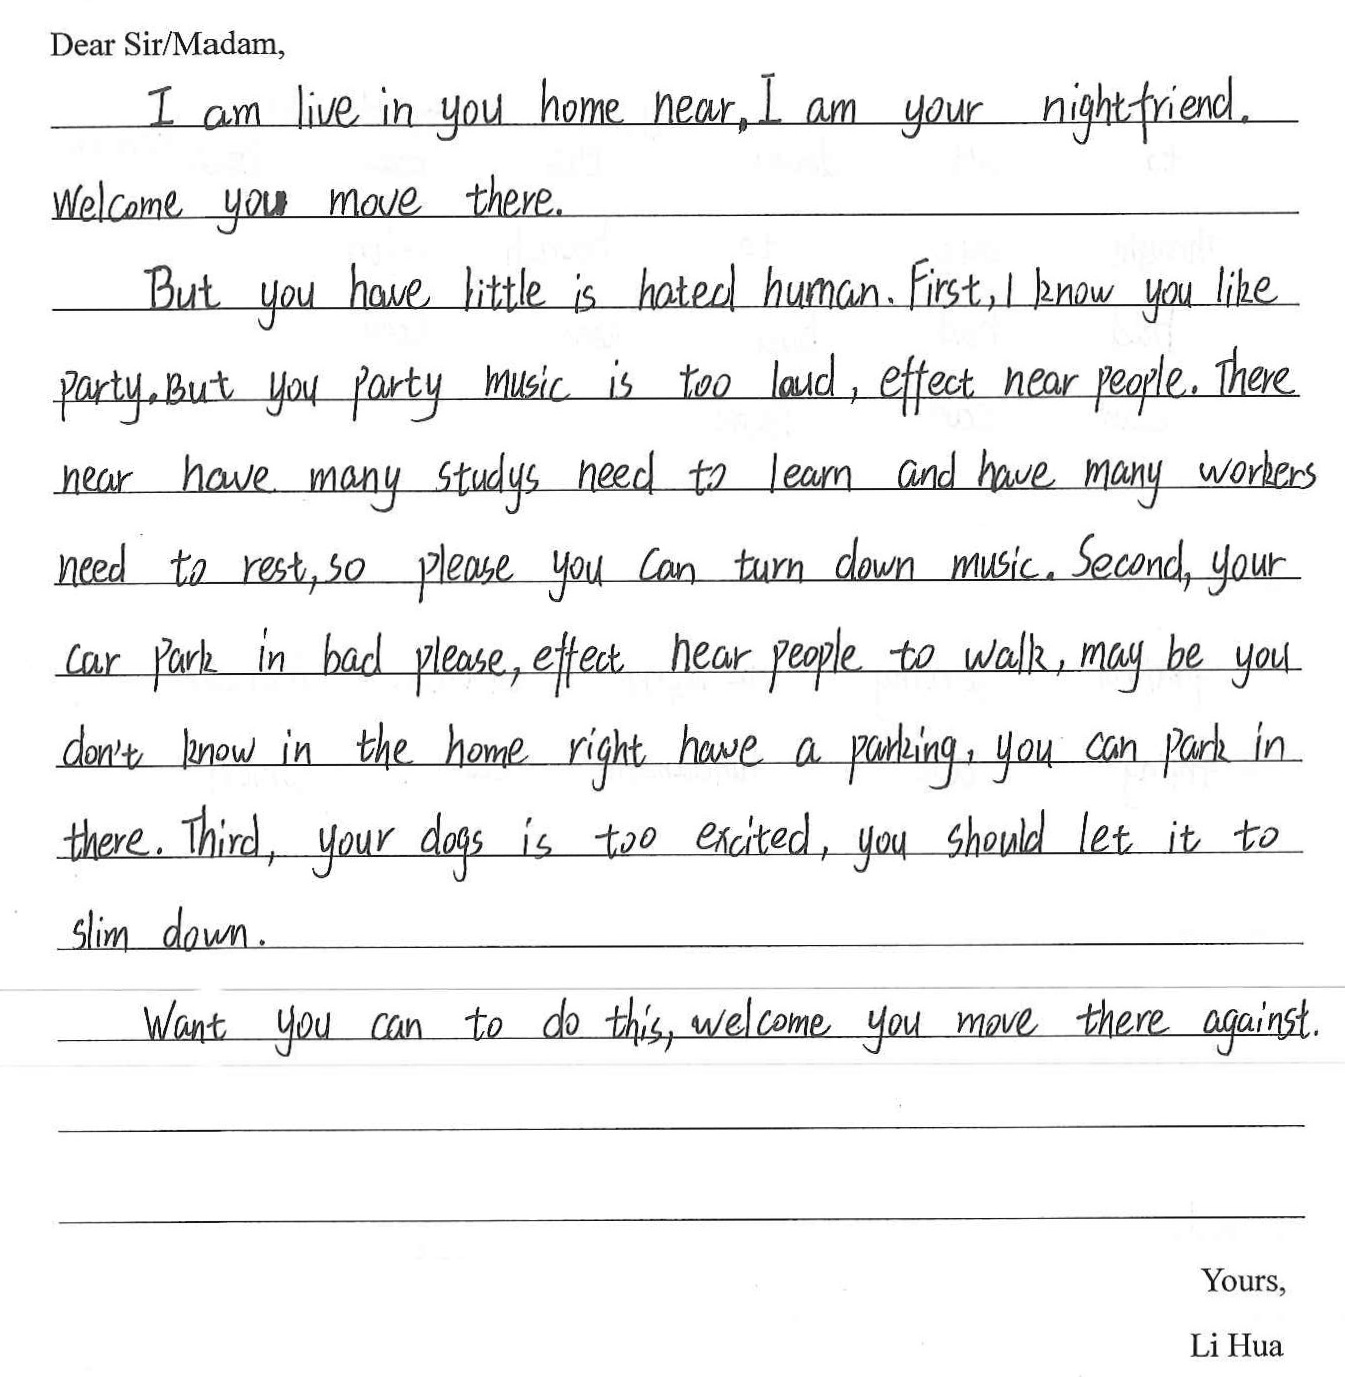 Dear Sir/Madam,
I am live in you home near, I am your nightfriend.
Welcome you move there.
But you have little is hated human. First, I know you like
party. But you party music is too loud, effect near people. There
near have many studys need to learn and have many workers
need to rest, so please you can turn down music. Second, your
car park in bad please, effect near people to walk, may be you
don't know in the home right have a parking, you can park in
there. Third, your dogs is too excited, you should let it to
slim down.
Want you can to do this, welcome you move there against.
Yours,
Li Hua